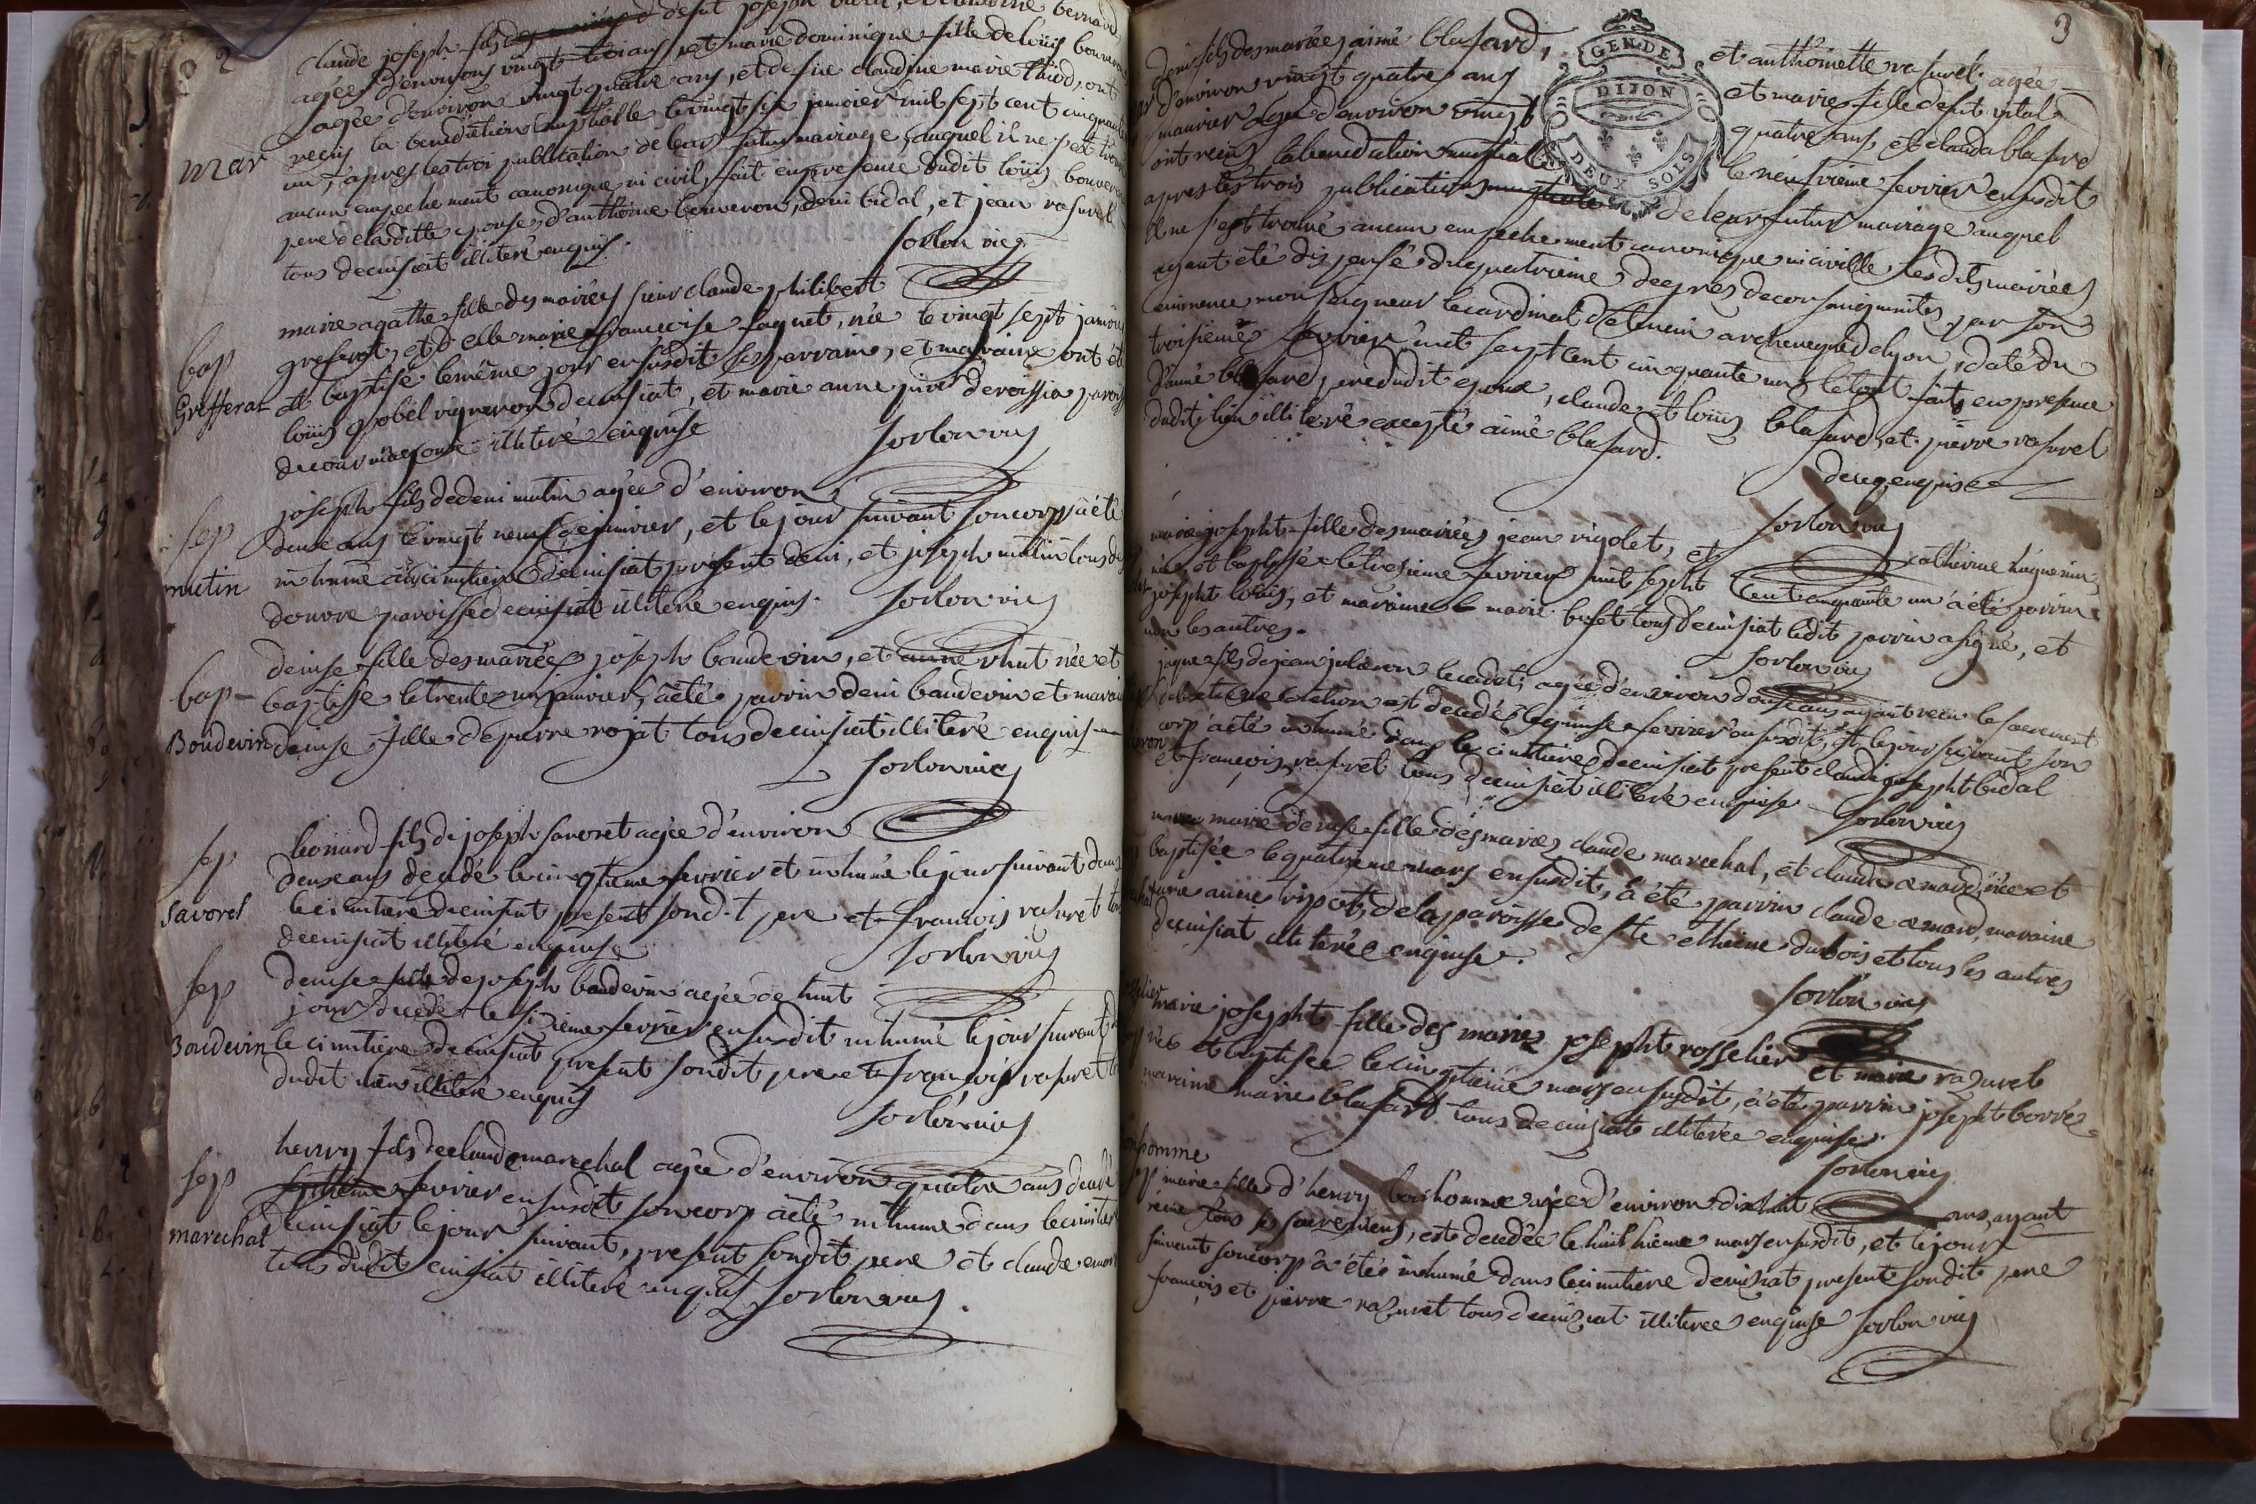 2
claude joseph fils des mariés d defit joseph et claudine bernard
agées d'environs vingt trois ans, et marie dominique fille de loüis bouveron
agée d'environ vingt quatre ans, et de fue claudine marie thiod, ont
mar
recûs la benediction nuptialle le vingt six janvier mil sept cent cinquante
un, apres les troi publication de leur futur mariage, auquel il ne s'est trouvé
aucun empechement canonique ni civil, fait en presence dudit loüis bouveron
pere de la ditte epouse, d'anthoine bouveron, deni bidal, et jean rasurel
tous de cuisiat illiteré enquis.
sorlon vic
marie agathe fille des mariées sieur claude philibert
bap
grefferat, et d elle marie francoise faguet, née le vingt sept janvier
Grefferat
et baptisé le même jour en susdit ses parrain, et maraine ont été
loüis gobel vigneron de cuisiat, et marie anne de voissia paroisse
de cour mangoux illiteré enquise
sorlon vic
joseph fils de deni mutin agée d'environ
sep
deuse ans le vingt neuf de janvier, et le jour suivant son corp à été
mutin
inhumé au cimitiere de cuisiat present deni, et joseph mutin tous deux
donvre paroisse de cuisiat illiteré enquis. sorlon vic
denise fille des mariées joseph baudevin, et anne rhut née et
bap
baptisse le trente un janvier, à été parrin deni baudevin et maraine
Boudevin
denise fille de pierre rojat tous de cuisiat illiteré enquis
sorlon vic
leonard fils de joseph savoret agée d'environ
sep
deuse ans decedé le cinqtieme fevrier et inhumé le jour suivant dans
Savoret
le cimitiere de cuisiat present sondit pere et françois rasurel tous
de cuisiat illiteré enquise
sorlon vic
sep
denise fille de joseph baudevin agée de huit
jour decedé le sixieme fevrier en susdit inhumé le jour suivant
Boudevin
le cimitiere de cuisiat present sondit pere et françois rasurel
dudit lieu illiteré enquis
sorlon vic
henry fils de claude marechal agée d'environ quatre ans decedé
sep
septieme fevrier en susdit son corp à été inhumé dans le cimitiere
marechal
de cuisiat le jour suivant, present sondit pere et claude
tous dudit cuisiat illiteré enquis sorlon vic
3
GEN DE
DIJON
DEUX SOLS
deni fils des mariées aimé blasard, et anthoinette rasurel agée
d'environ vingt quatre ans et marie fille defit vital
maurier agée d'environ vingt quatre ans et clauda blasard
ont reçus la benediction nuptiale le neufvieme fevrier en susdit
apres les trois publications de leur futur mariage auquel
il ne s'est trouvé aucun empechement canonique ni civille les dits mariées
ayant été dispensé du quatrieme degres de consanguinité par son
eminence monseigneur le cardinal de tencin archeveque de lyon, daté du
troisieme fevrier mil sept cent cinquante un, le tout fait en presence
d'aimé blasard, pere dudit epoux, claude et loüis blasard, et pierre rasurel
dudit lieu illiteré excepté aimé blasard.
de ce enquis
sorlon vic
marie josepht fille des mariées jean rigolet, et catherine huguenin
née et baptisée le tresieme fevrier mil sept cent cinquante un à été parrin
josepht loüis, et maraine marie buset tous de cuisiat ledit parrin a signé, et
non les autres.
sorlon vic
jaque fils de jean juleron le cadet, agée d'environ douse ans ayant recu le sacrement
est decedé le quinse fevrier en susdit, et le jour suivant son
corp à été inhumé dans le cimitiere de cuisiat present claude josepht bidal
et françois rasurel tous de cuisiat illiteré enquise
sorlon vic
marie denise fille des mariées claude marechal, et claudine emard, née et
baptisée le quatrieme mars en susdit, à été parrin claude emard, maraine
marie anne tripot, de la paroisse de ste etheine du bois et tous les autres
de cuisiat illiterée enquise.
sorlon vic
marie josepht fille des mariez josepht rosselier et marie rasurel
née et baptisée le cinqtieme mars en susdit, à été parrin josepht borré
maraine marie blasard tous de cuisiat illiterée enquise.
sorlon vic
marie fille d'henry bonhomme agée d'environ dixhuit ans, ayant
reçue tous les sacremens, est decedée le huithieme mars en susdit, et le jour
suivant son corp à été inhumé dans le cimitiere de cuisiat present sondit pere
françois et pierre rasurel tous de cuisiat illiterée enquise sorlon vic